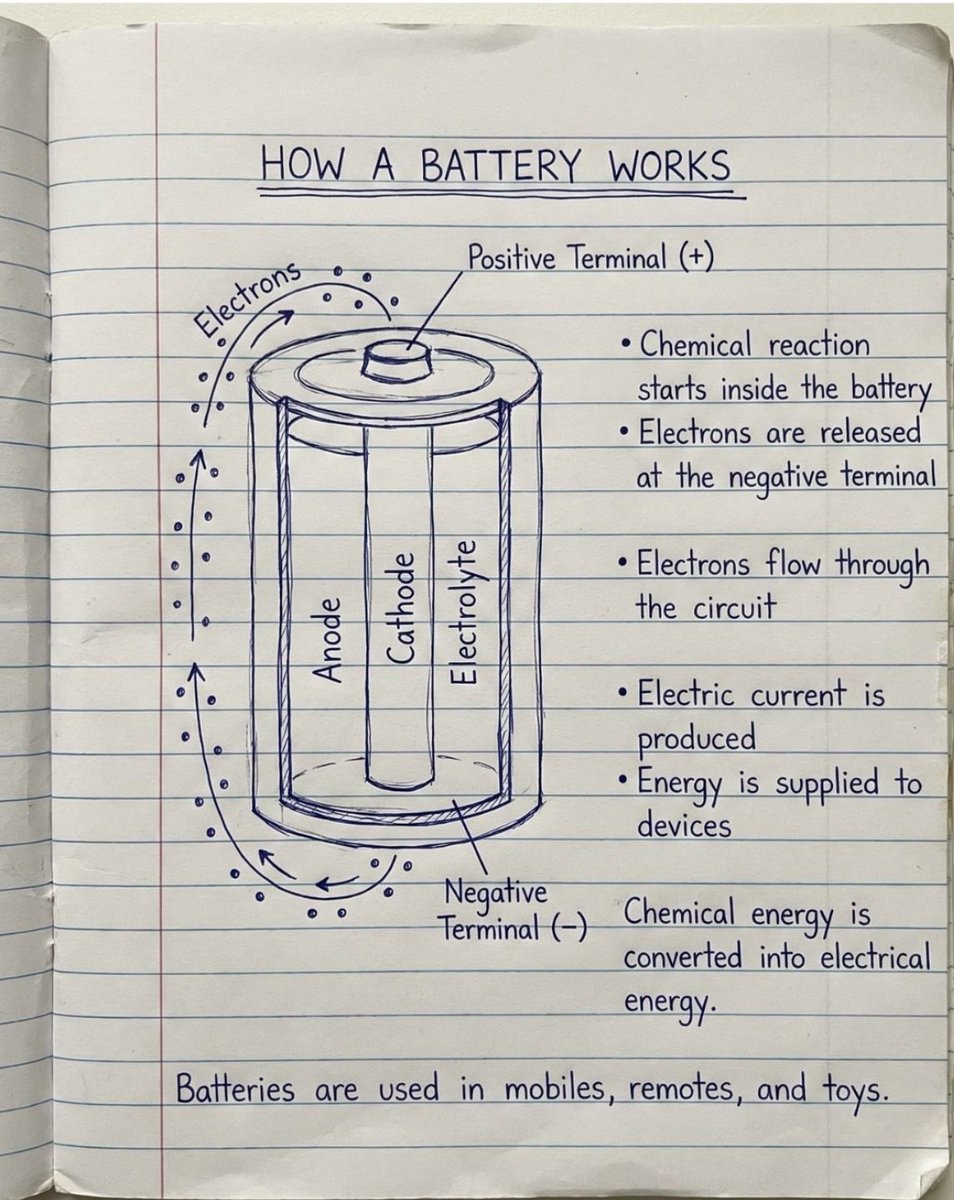 HOW A BATTERY WORKS
Positive Terminal (+)
Electrons
• Chemical reaction
starts inside the battery
• Electrons are released
at the negative terminal
• Electrons flow through
the circuit
Anode
Cathode
Electrolyte
• Electric current is
produced
• Energy is supplied to
devices
Negative
Terminal (−)
Chemical energy is
converted into electrical
energy.
Batteries are used in mobiles, remotes, and toys.